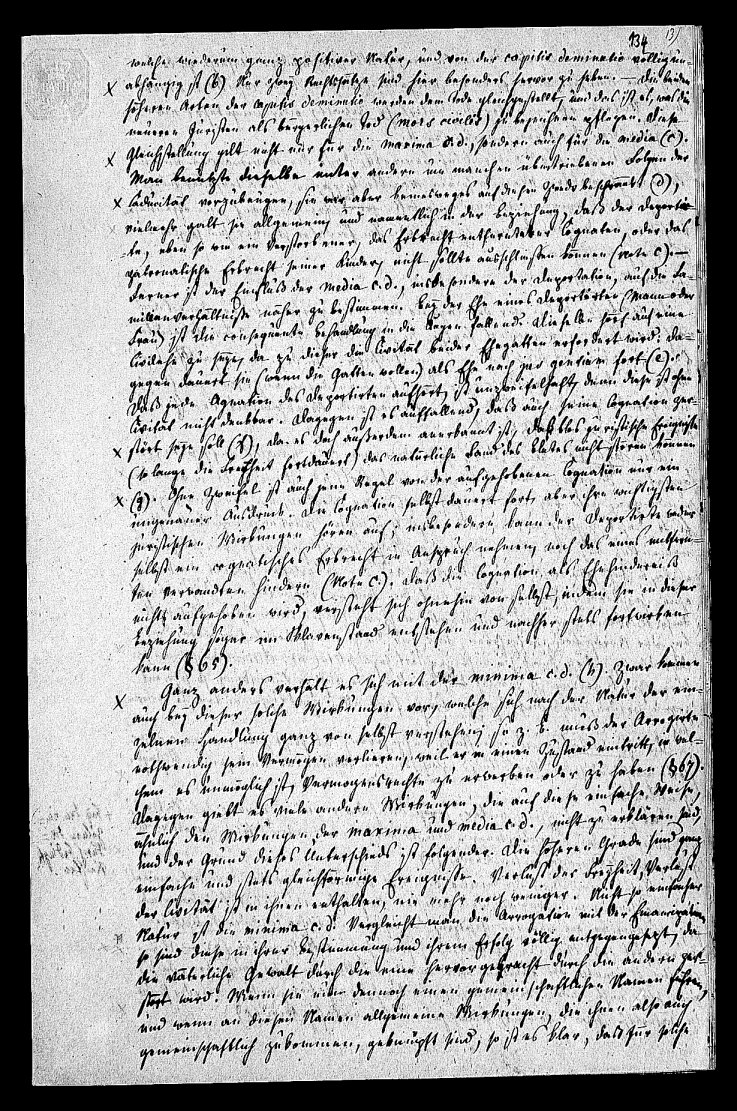 134
welche wiederum ganz positiver Natur, und von der capitis deminutio völlig un-
abhängig ist (b) Nur zwey Rechtssätze sind hier besonders hervor zu heben. — Die beiden
höheren Arten der capitis deminutio werden dem Tode gleichgestellt, und das ist es, was die
neueren Juristen als bürgerlichen Tod (mors civilis) zu bezeichnen pflegen. Diese
Gleichstellung gilt nicht nur für die maxima c. d., sondern auch für die media (c).
Man benutzte dieselbe unter andern um manchen übertriebenen Folgen der
Caducität vorzubeugen, sie war aber keinesweges auf diesen Zweck beschränkt (d),
vielmehr galt sie allgemein, und namentlich in der Beziehung, daß der Deportir-
te, eben so wie ein Verstorbener, das Erbrecht entfernterer Cognaten, oder das
patronatische Erbrecht seiner Kinder, nicht sollte ausschließen können (Note c). —
Ferner ist der Einfluß der media c. d., insbesondere der Deportation, auf die Fa-
milienverhältnisse näher zu bestimmen. Bey der Ehe eines Deportirten (Mann oder
Frau) ist die consequente Behandlung in die Augen fallend. Dieselbe hört auf eine
Civilehe zu seyn, da zu dieser die Civität beider Ehegatten erfordert wird. Da-
gegen dauert sie (wenn die Gatten wollen) als Ehe nach jus gentium fort (e).
Daß jede Agnation des Deportirten aufhört, ist unzweifelhaft, denn diese ist ohne
Civität nicht denkbar. Dagegen ist es auffallend, daß auch seine Cognation zer-
stört seyn soll (f), da es doch außerdem anerkannt ist, daß blos juristische Ereignisse
(so lange die Freyheit fortdauert) das natürliche Band des Blutes nicht stören können
(g). Ohne Zweifel ist auch jene Regel von der aufgehobenen Cognation nur ein
ungenauer Ausdruck. Die Cognation selbst dauert fort, aber ihre wichtigsten
juristischen Wirkungen hören auf; insbesondere kann der Deportirte weder
selbst ein cognatisches Erbrecht in Anspruch nehmen, noch das eines entfern-
ten Verwandten hindern (Note c). Daß die Cognation als Ehehinderniß
nicht aufgehoben wird, versteht sich ohnehin von selbst, indem sie in dieser
Beziehung sogar im Sklavenstand entstehen und nachher stets fortwirken
kann (§ 65).
Ganz anders verhält es sich mit der minima c. d. (h). Zwar kommen
auch bey dieser solche Wirkungen vor, welche sich nach der Natur der ein-
zelnen Handlung ganz von selbst verstehen; so z. B. muß der Arrogirte
nothwendig sein Vermögen verlieren, weil er in einen Zustand eintritt, in wel-
chem es unmöglich ist, Vermögensrechte zu erwerben oder zu haben (§ 67).
Dagegen giebt es viele andere Wirkungen, die auf diese einfache Weise,
ähnlich den Wirkungen der maxima und media c. d., nicht zu erklären sind,
und der Grund dieses Unterschieds ist folgender. Die höheren Grade sind ganz
einfache und stets gleichförmige Ereignisse. Verlust der Freyheit, Verlust
der Civität ist in ihnen enthalten, nie mehr noch weniger. Nicht so einfacher
Natur ist die minima c. d. Vergleicht man die Arrogation mit der Emancipation
so sind diese in ihrer Bestimmung und ihrem Erfolg völlig entgegengesetzt, da
die väterliche Gewalt durch die eine hervorgebracht durch die andern zer-
stört wird. Wenn sie nun dennoch einen gemeinschaftlichen Namen führen,
und wenn an diesen Namen allgemeine Wirkungen, die ihnen also auch
gemeinschaftlich zukommen, geknüpft sind, so ist es klar, daß für solche